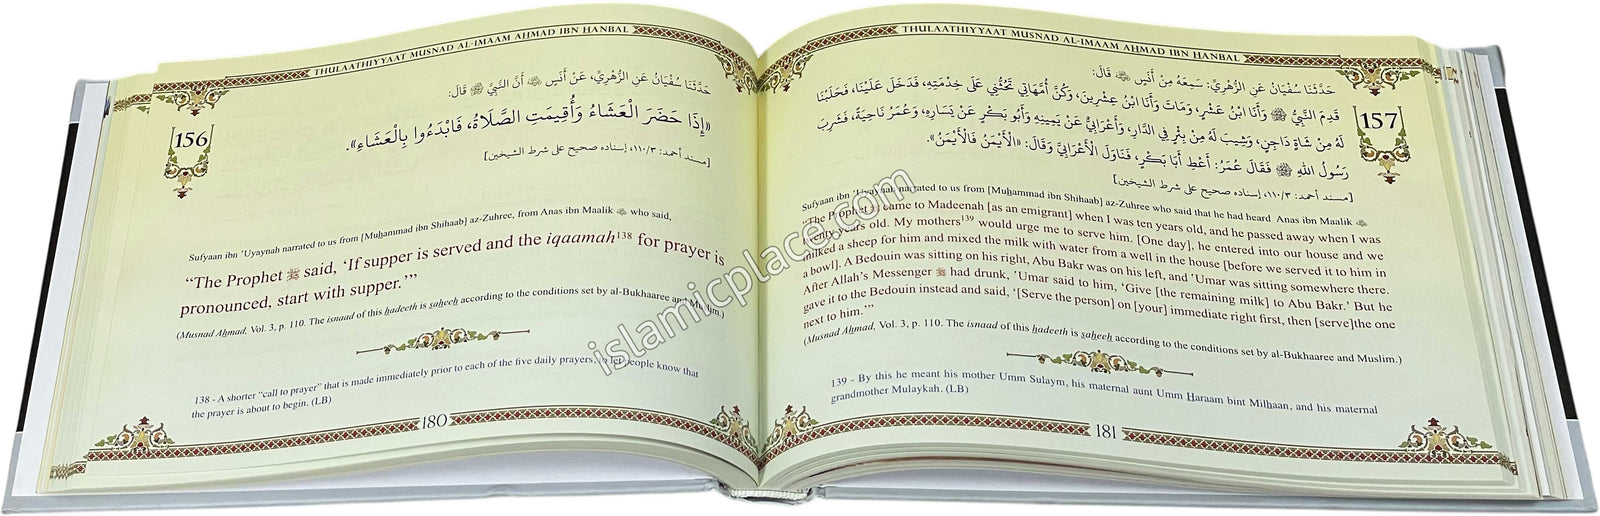 THULAATHIYYAAT MUSNAD AL-IMAAM AHMAD IBN HANBAL
156
حَدَّثَنَا سُفْيَانُ عَنِ الزُّهْرِيِّ، عَنْ أَنَسٍ ﷺ أَنَّ النَّبِيَّ ﷺ قَالَ:
«إِذَا حَضَرَ الْعَشَاءُ وَأُقِيمَتِ الصَّلَاةُ، فَابْدَءُوا بِالْعَشَاءِ».
[مسند أحمد: ١١٠/٣، إسناده صحيح على شرط الشيخين]
Sufyaan ibn ʻUyaynah narrated to us from [Muhammad ibn Shihaab] az-Zuhree, from Anas ibn Maalik who said,
“The Prophet ﷺ said, ‘If supper is served and the iqaamah138 for prayer is
pronounced, start with supper.’”
(Musnad Ahmad, Vol. 3, p. 110. The isnaad of this hadeeth is saheeh according to the conditions set by al-Bukhaaree and Muslim.)
138 - A shorter “call to prayer” that is made immediately prior to each of the five daily prayers, to let people know that
the prayer is about to begin. (LB)
180
THULAATHIYYAAT MUSNAD AL-IMAAM AHMAD IBN HANBAL
157
حَدَّثَنَا سُفْيَانُ عَنِ الزُّهْرِيِّ: سَمِعَهُ مِنْ أَنَسٍ قَالَ:
قَدِمَ النَّبِيُّ ﷺ وَأَنَا ابْنُ عَشْرٍ، وَمَاتَ وَأَنَا ابْنُ عِشْرِينَ، وَكُنَّ أُمَّهَاتِي تَحُثُّنِي عَلَى خِدْمَتِهِ، فَدَخَلَ عَلَيْنَا، فَحَلَبْنَا
لَهُ مِنْ شَاةٍ دَاجِنٍ، وَشِيبَ لَهُ مِنْ بِئْرٍ فِي الدَّارِ، وَأَعْرَابِيٌّ عَنْ يَمِينِهِ وَأَبُو بَكْرٍ عَنْ يَسَارِهِ، وَعُمَرُ نَاحِيَةً، فَشَرِبَ
رَسُولُ اللهِ ﷺ فَقَالَ عُمَرُ: أَعْطِ أَبَا بَكْرٍ، فَنَاوَلَ الْأَعْرَابِيَّ وَقَالَ: «الْأَيْمَنُ فَالْأَيْمَنُ».
[مسند أحمد: ١١٠/٣، إسناده صحيح على شرط الشيخين]
Sufyaan ibn ʻUyaynah narrated to us from [Muhammad ibn Shihaab] az-Zuhree who said that he had heard Anas ibn Maalik
“The Prophet ﷺ came to Madeenah [as an emigrant] when I was ten years old, and he passed away when I was
twenty years old. My mothers139 would urge me to serve him. [One day], he entered into our house and we
milked a sheep for him and mixed the milk with water from a well in the house [before we served it to him in
a bowl]. A Bedouin was sitting on his right, Abu Bakr was on his left, and ʻUmar was sitting somewhere there.
After Allah’s Messenger ﷺ had drunk, ʻUmar said to him, ‘Give [the remaining milk] to Abu Bakr.’ But he
gave it to the Bedouin instead and said, ‘[Serve the person] on [your] immediate right first, then [serve]the one
next to him.’”
(Musnad Ahmad, Vol. 3, p. 110. The isnaad of this hadeeth is saheeh according to the conditions set by al-Bukhaaree and Muslim.)
139 - By this he meant his mother Umm Sulaym, his maternal aunt Umm Haraam bint Milhaan, and his maternal
grandmother Mulaykah. (LB)
181
islamicplace.com